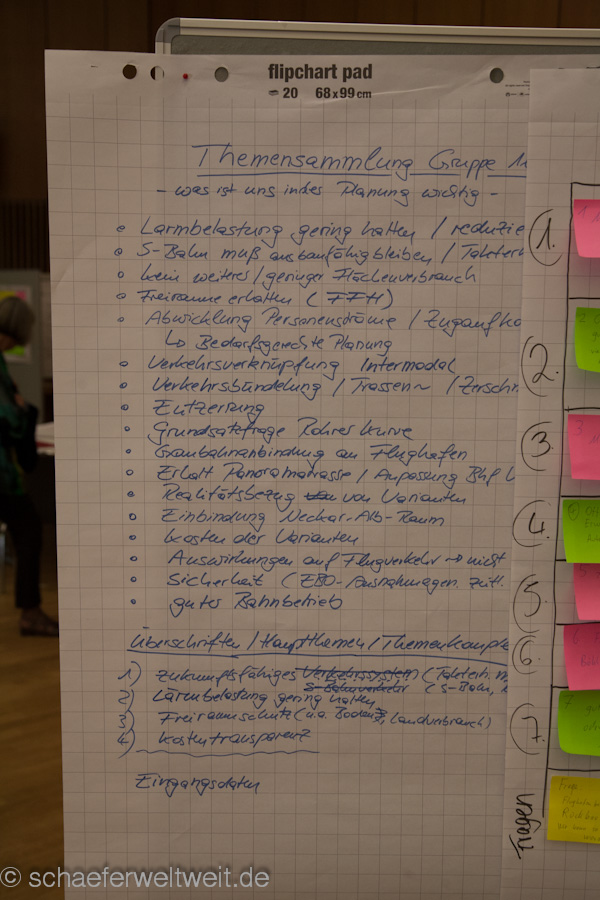 flipchart pad
20 68 x 99 cm
Themensammlung Gruppe 1
- was ist uns in der Planung wichtig -
Lärmbelastung gering halten / reduzie
S-Bahn muß ausbaufähig bleiben / Takterh
kein weiterer / geringer Flächenverbrauch
Freiräume erhalten (FFH)
Abwicklung Personenströme / Zugaufko
↳ Bedarfsgerechte Planung
Verkehrsverknüpfung Intermodal
Verkehrsbündelung / Trassen~ / Zerschn
Entzerrung
Grundsatzfrage Rohrer Kurve
Gäubahnanbindung an Flughafen
Erhalt Panoramatrasse / Anpassung Bhf V
Realitätsbezug von Varianten
Einbindung Neckar-Alb-Raum
Kosten der Varianten
Auswirkungen auf Flugverkehr → nicht
Sicherheit (EBO-Ausnahmegen. zeitl.
guter Bahnbetrieb
Überschriften / Hauptthemen / Themenkomple
1) zukunftsfähiges Verkehrssystem (Takterh.
S-Bahnverkehr (S-Bahn,
2) Lärmbelastung gering halten
3) Freiraumschutz (u.a. Boden, Landverbrauch)
4) Kostentransparenz
Eingangsdaten
1.
2.
3.
4.
5.
6.
7.
Fragen
Frage
© schaeferweltweit.de